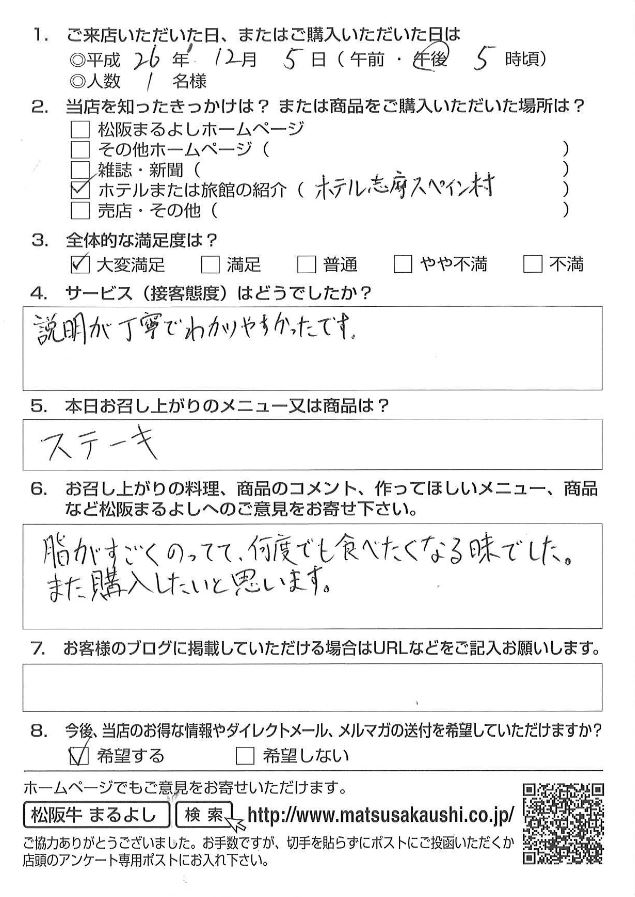 1. ご来店いただいた日、またはご購入いただいた日は
◎平成 26 年 12 月 5 日（午前・午後 5 時頃）
◎人数 1 名様
2. 当店を知ったきっかけは？ または商品をご購入いただいた場所は？
松阪まるよしホームページ
その他ホームページ（ ）
雑誌・新聞（ ）
ホテルまたは旅館の紹介（ ホテル志摩スペイン村 ）
売店・その他（ ）
3. 全体的な満足度は？
大変満足 満足 普通 やや不満 不満
4. サービス（接客態度）はどうでしたか？
説明が丁寧でわかりやすかったです。
5. 本日お召し上がりのメニュー又は商品は？
ステーキ
6. お召し上がりの料理、商品のコメント、作ってほしいメニュー、商品
など松阪まるよしへのご意見をお寄せ下さい。
脂がすごくのってて、何度でも食べたくなる味でした。
また購入したいと思います。
7. お客様のブログに掲載していただける場合はURLなどをご記入お願いします。
8. 今後、当店のお得な情報やダイレクトメール、メルマガの送付を希望していただけますか？
希望する 希望しない
ホームページでもご意見をお寄せいただけます。
松阪牛 まるよし 検索 http://www.matsusakaushi.co.jp/
ご協力ありがとうございました。お手数ですが、切手を貼らずにポストにご投函いただくか
店頭のアンケート専用ポストにお入れ下さい。